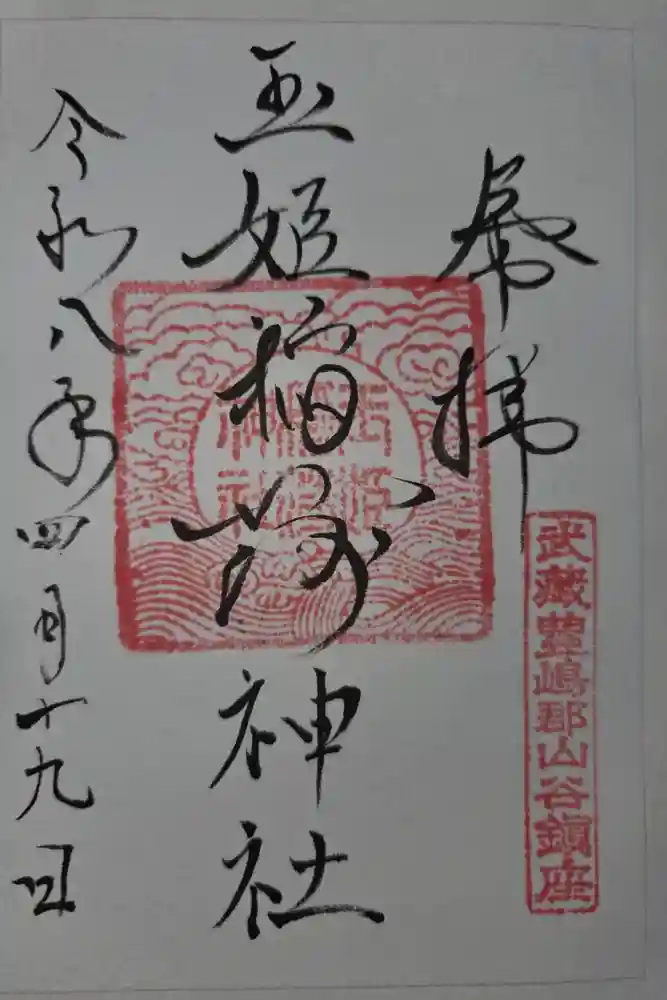 奉拝
武蔵豊嶋郡山谷鎮座
玉姫稲荷神社
令和八年四月十九日